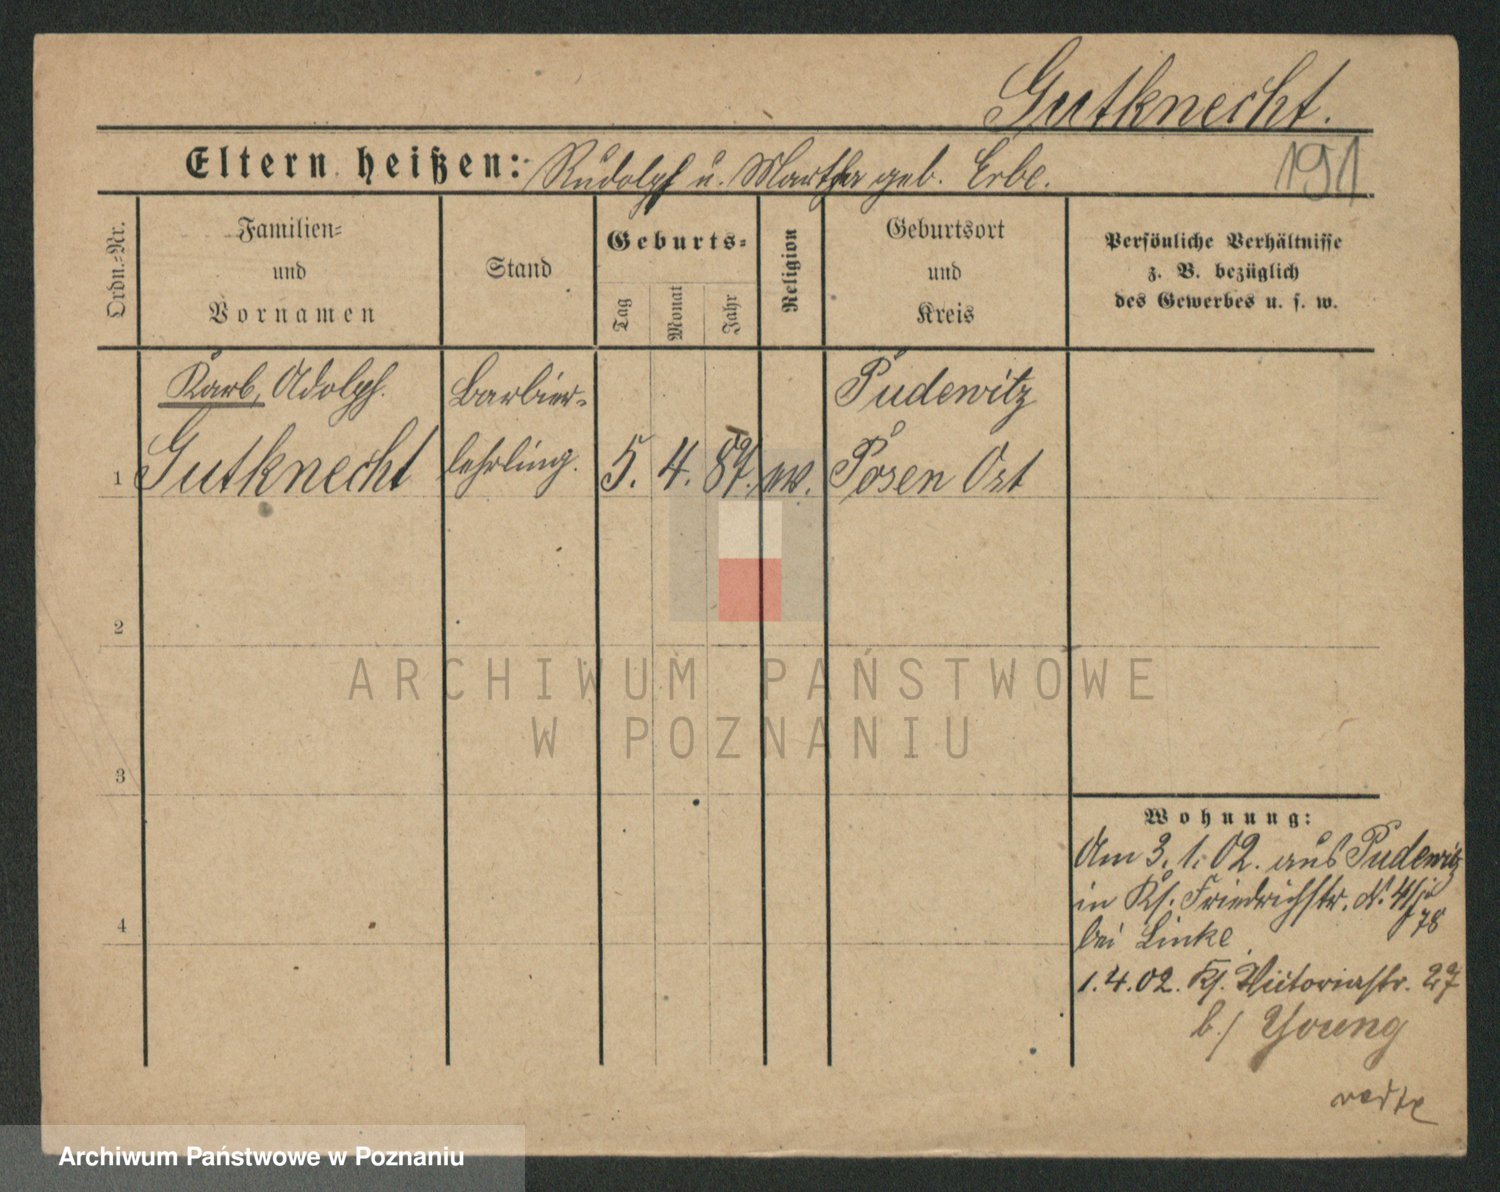 Gutknecht.
Eltern heißen: Rudolph u. Martha geb. Erbe.
191
Ordn.-Nr.
Familien-
und
Vornamen
Stand
Geburts-
Tag
Monat
Jahr
Religion
Geburtsort
und
Kreis
Persönliche Verhältnisse
z. B. bezüglich
des Gewerbes u. s. w.
Karb, Adolph.
Barbier-
Pudewitz
1 Gutknecht lehrling. 5. 4. 87. ev. Posen Ost
2
ARCHIWUM PAŃSTWOWE
W POZNANIU
3
Wohnung:
Am 3.1.02. aus Pudewitz
in Friedrichstr. N. 4
78
bei Linke
4
1.4.02. Victoriastr. 27
b./ Young
Archiwum Państwowe w Poznaniu